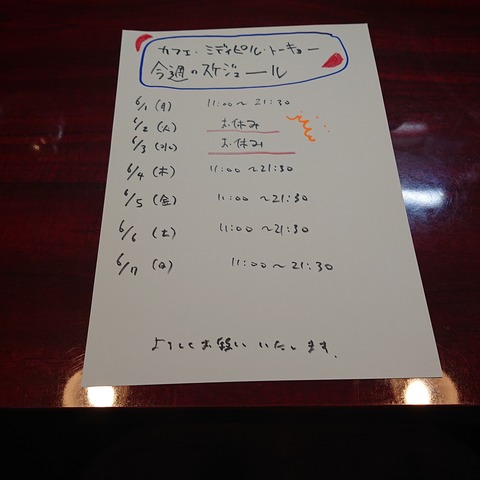 カフェ・ミディピル・トーキョー
今週のスケジュール
6/1 (月) 11:00~21:30
6/2 (火) お休み
6/3 (水) お休み
6/4 (木) 11:00~21:30
6/5 (金) 11:00~21:30
6/6 (土) 11:00~21:30
6/7 (日) 11:00~21:30
よろしくお願いいたします.